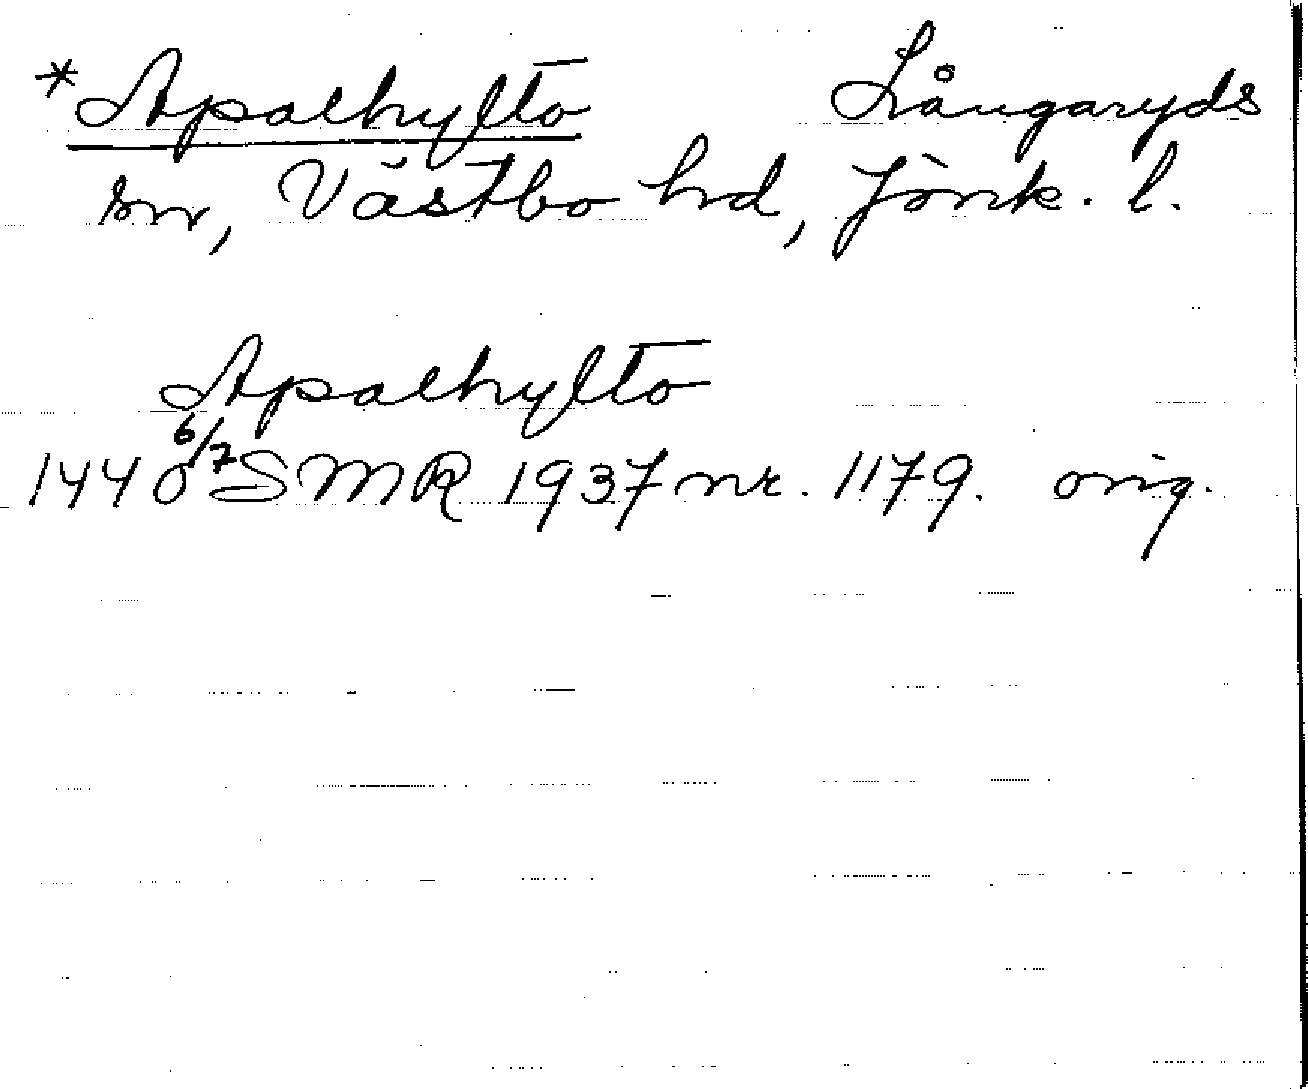 *Apalhylto Långaryds
sn, Västbo hd, Jönk. l.
Apalhylto
1440 6/7 SMR 1937 nr. 1179. orig.